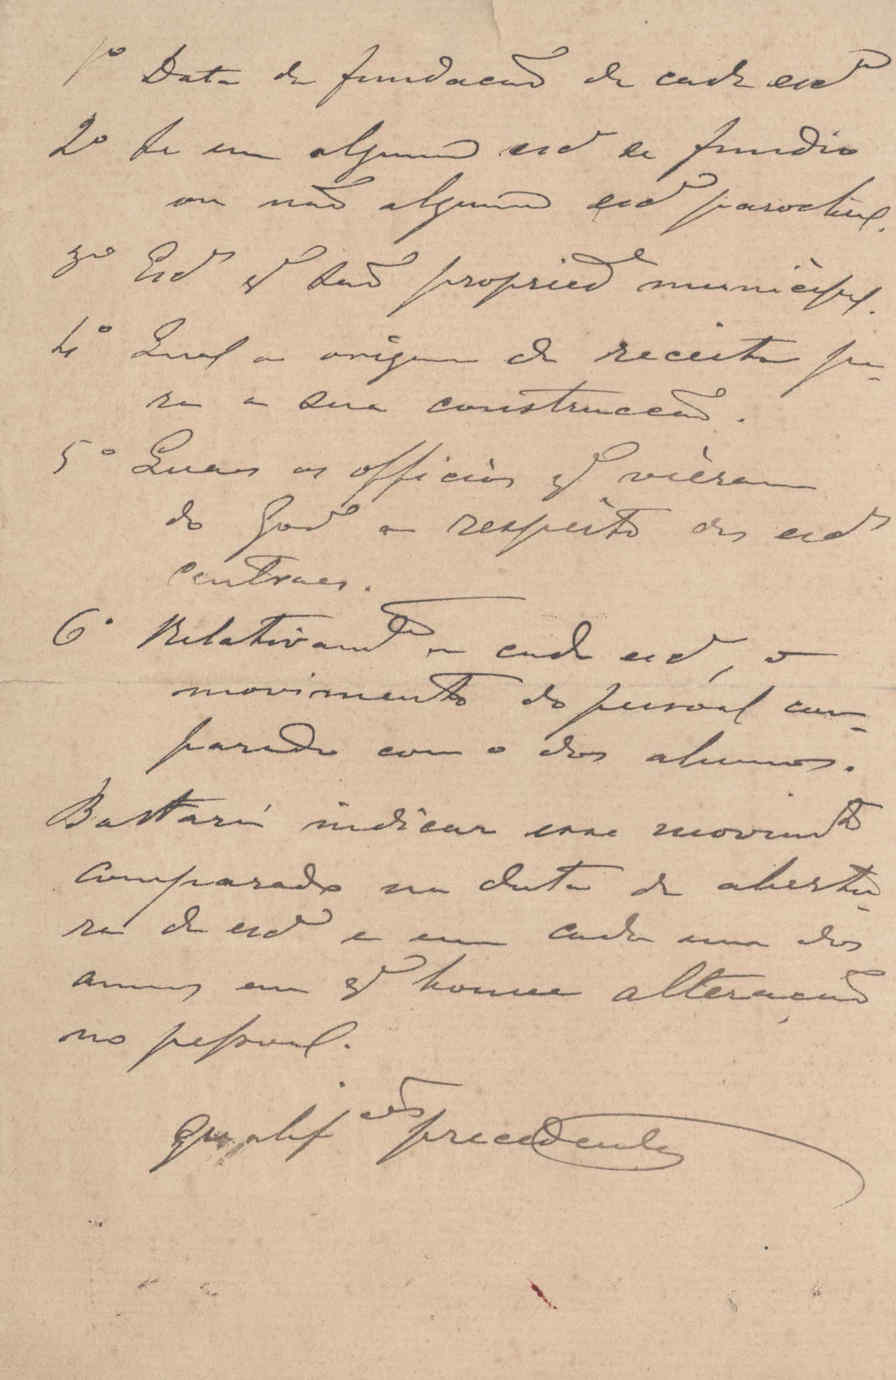 1º Data da fundação de cada escª
2º Se em alguma escª se fundio
ou não alguma escª parochial.
3º Escªs qᵉ são propriedᵉ municipal.
4º Qual a origem da receita pa-
ra a sua construcção.
5º Quaes os officios qᵉ vieram
do Govº a respeito das escªs
centraes.
6º Relativamᵗᵉ a cada escª, o
movimento do pessoal com-
parado com o dos alumnos.
Bastará indicar esse movimᵗº
comparado na data da abertu-
ra da escª e em cada um dos
annos em qᵉ houve alteração
no pessoal.
precedente